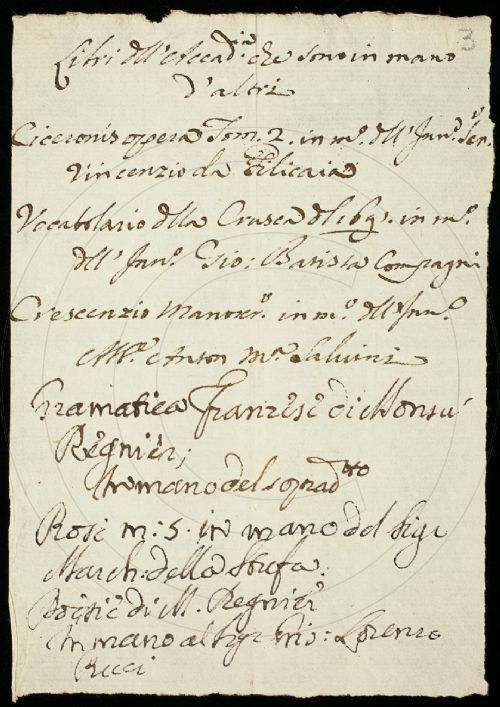 3
Libri dell'Accad.ia che sono in mano
d'altri
Ciceronis opera Tom. 2. in m.o dell'Inn.o Sen.
Vincenzio da Filicaia
Vocabolario della Crusca in m.o
dell'Inn.o Gio: Batista Compagni
Crescenzio Manoscr.o in m.o dell'Inn.o
Ab.e Anton M.a Salvini
Gramatica Franzese di Monsù
Regnier;
In mano del sopradtto
Rose m: 5. in mano del Sigr
March: della Stufa.
Poesie di M. Regnier
in mano al Sigr Gio: Lorenzo
Pucci